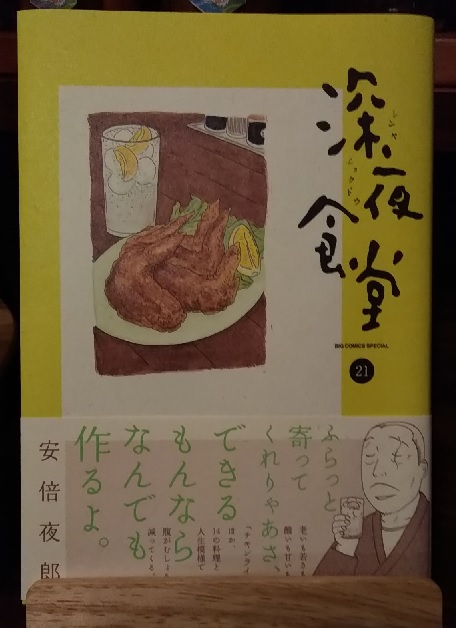 深夜食堂
シンヤ
ショクドウ
BIG COMICS SPECIAL
21
ふらっと
寄って
くれりゃあさ、
できる
もんなら
なんでも
作るよ。
安倍夜郎
老いも若きも
酸いも甘いも
「チキンライ
ほか、
14の料理と
人生模様で
腹がむしょ
減ってくる